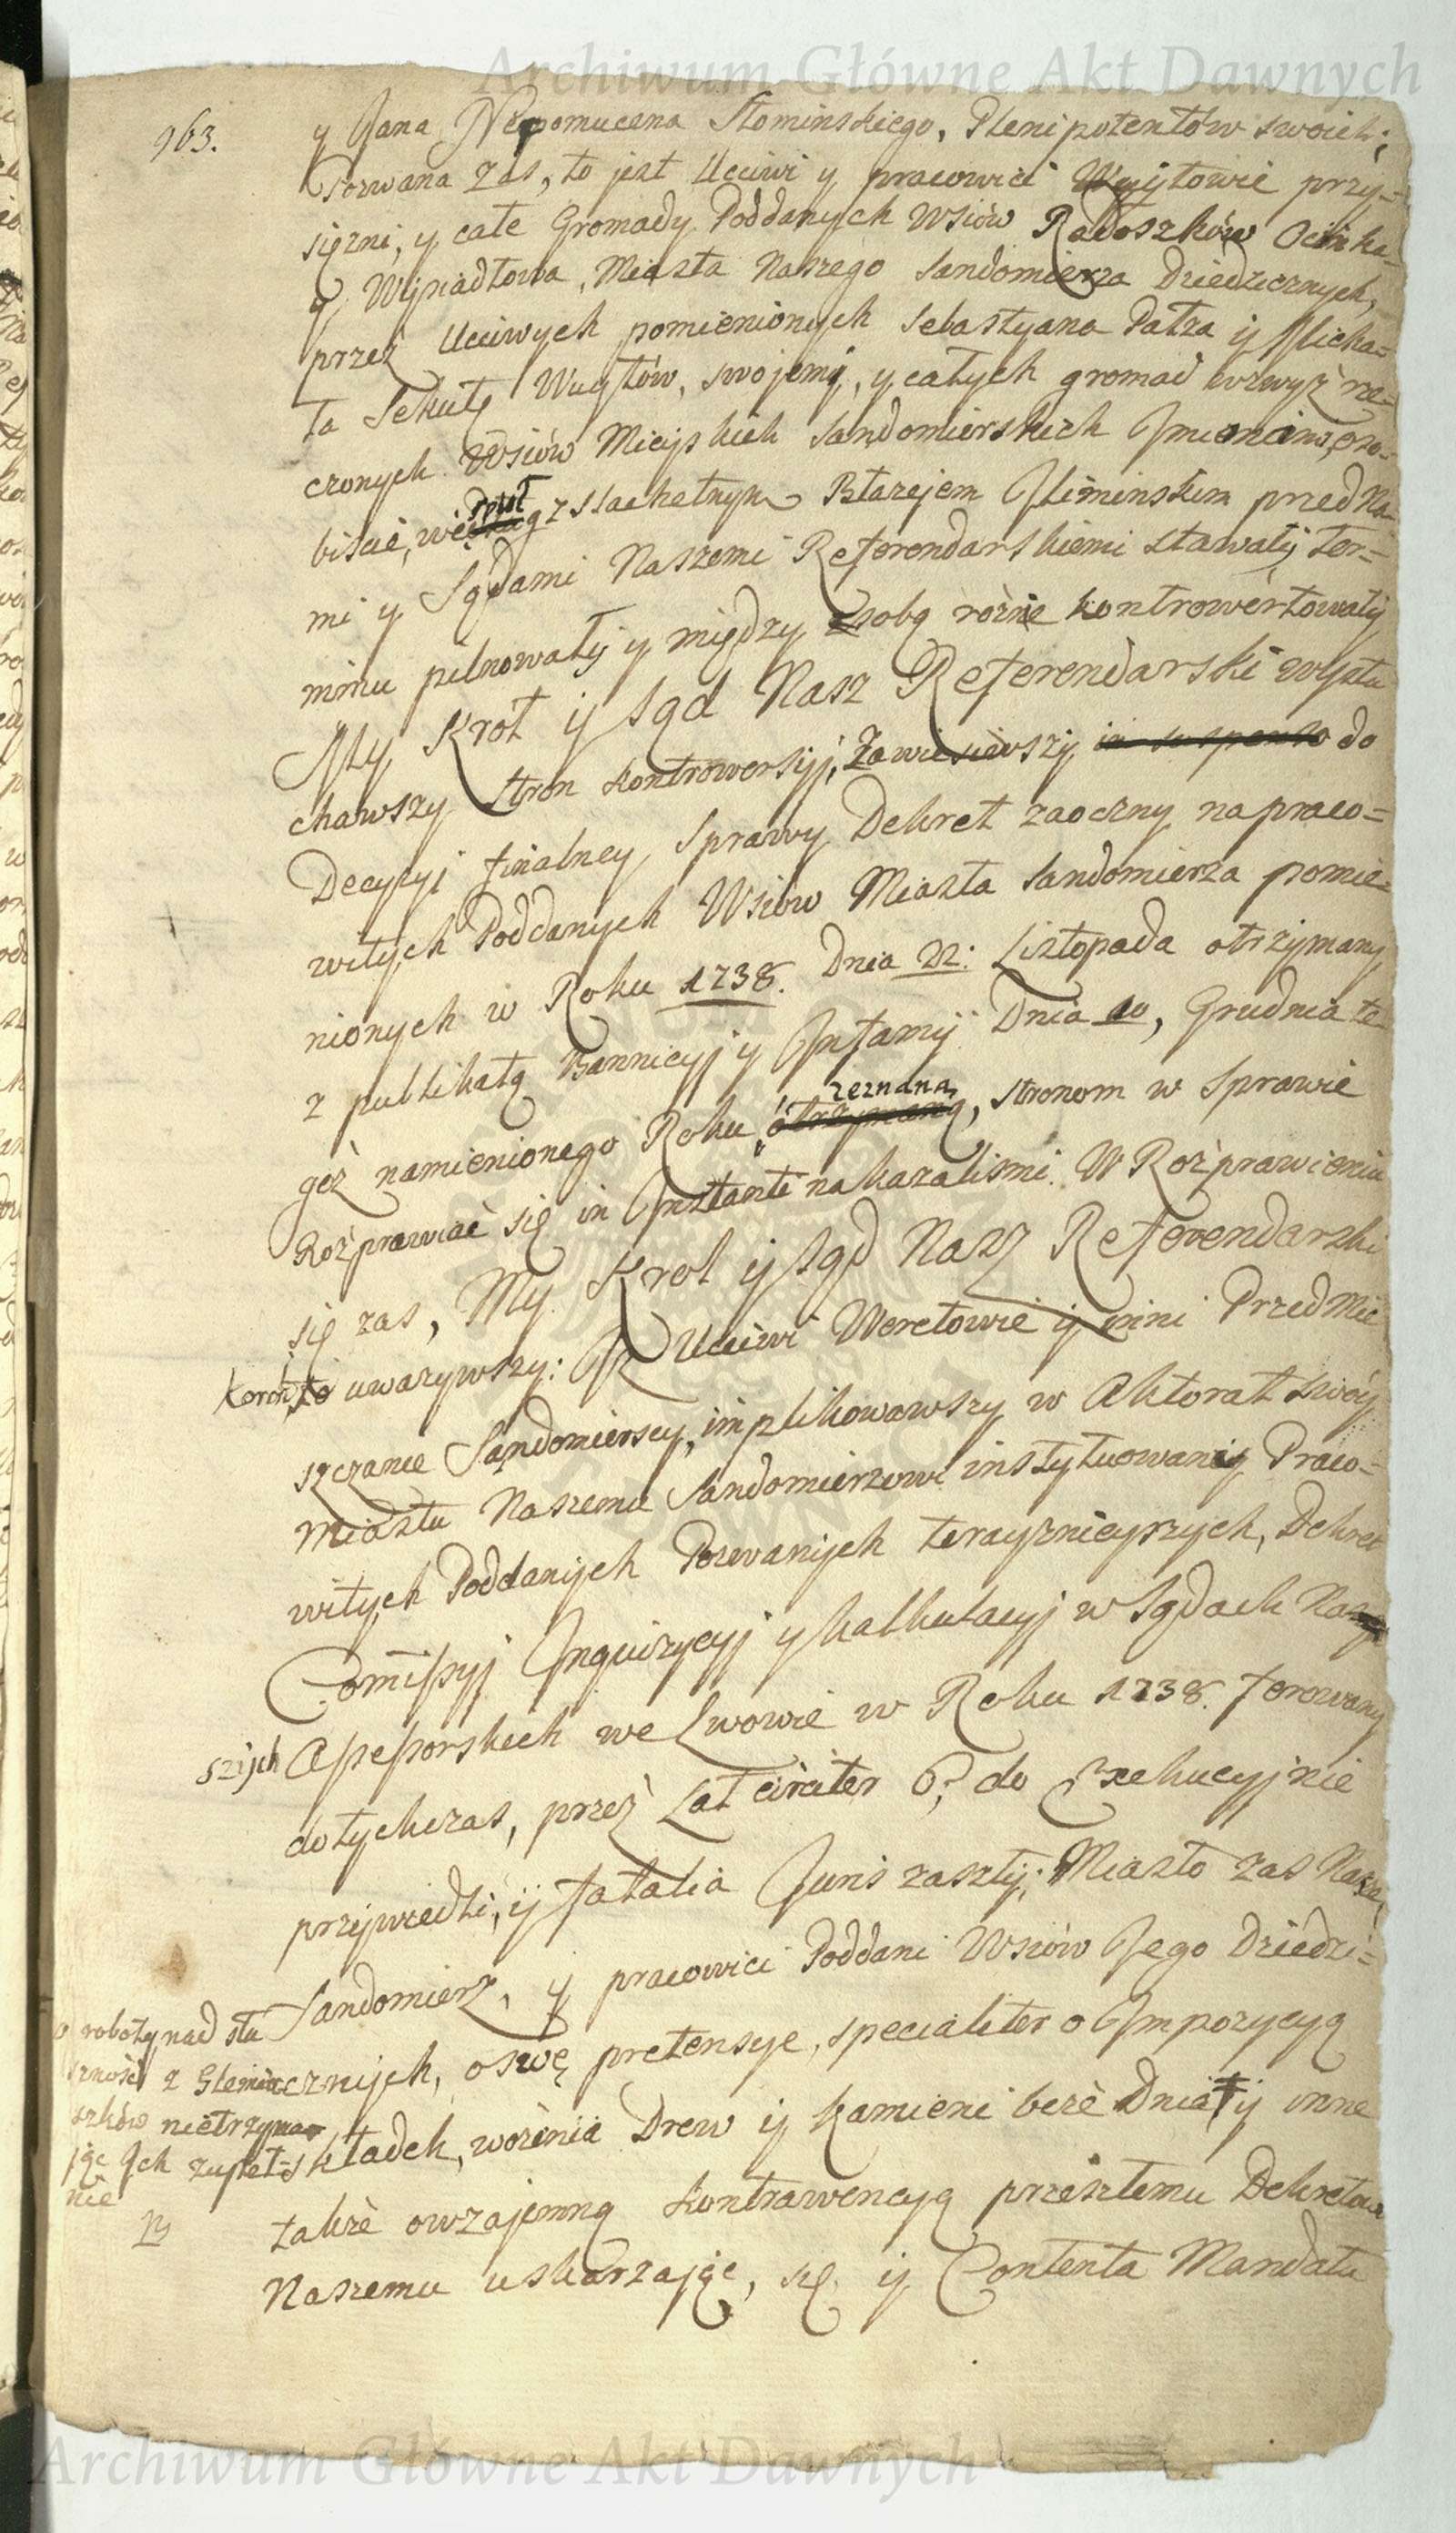 Archiwum Główne Akt Dawnych
963.
y Jana Nepomucena Słominskiego, Plenipotentów swoich;
Pozwana zas, to jest Ucciwi y pracowici Wuytowie przy=
siężni, y całe Gromady Poddanych Wsiów Radoszków Ocinka=
y Wypiadłowa, Miasta Naszego Sandomierza Dziedzicznych,
przez Ucciwych pomienionych Sebastyana Patra y Micha=
ła Sekułę Wuytów, swojemi, y całych gromad wzwyż rze=
czonych Wsiów Mieyskich Sandomierskich Imieniem, oso=
biscie, wespuł z Slachetnym Błazejem Kliminskim przed Na=
mi y Sądami Naszemi Referendarskiemi stawały ter=
minu pilnowały y między sobą rożnie kontrowertowały
My Krol y Sąd Nasz Referendarski wysłu
chawszy Stron kontrowersyj, Zawiesiwszy in suspenso do
Decyzyi finalney Sprawy Dekret zaoczny na praco=
witych Poddanych Wsiów Miasta Sandomierza pomie=
nionych w Roku 1738. Dnia 22: Listopada otrzymany,
z publikatą Bannicyj y Infamij Dnia 10, Grudnia te=
goż namienionego Roku otrzymaną, stronom w Sprawie
zeznaną
Rozprawiać się in Instanti nakazalismi. W Rozprawieniu
się zas, My Krol y Sąd Nasz Referendarski
Koron: to uwazywszy: Iż UcciwiWeretowie y inni Przedmie
szczanie Sandomierscy, implikowawszy w Aktorat swoy
Miastu Naszemu Sandomierzowi instytuowany Praco=
witych Poddanych Pozwanych teraznieyszych, Dekret
Comissyj Inquizycyj y kalkulacyj w Sądach Na
szych Assessorskich we Lwowie w Roku 1738. ferowany
dotychczas, przez Lat circiter 6, do Exekucyj nie
przywiedli, y fatalia Juris zaszły; Miasto zas Nasze
Sandomierz, y pracowici Poddani Wsiów Jego Dziedzi=
cznych, o swę pretensye, specialiter o Impozycyą
składek, wożenia Drew y kamieni beże Dnia y inne
o roboty nad słu
szność z
szków nietrzyma
jąc Ich zupeł=
nie
także owzajemną kontrawencyą przeszłemu Dekretowi
Naszemu uskarzając, się y Contenta Mandatu
Archiwum Główne Akt Dawnych